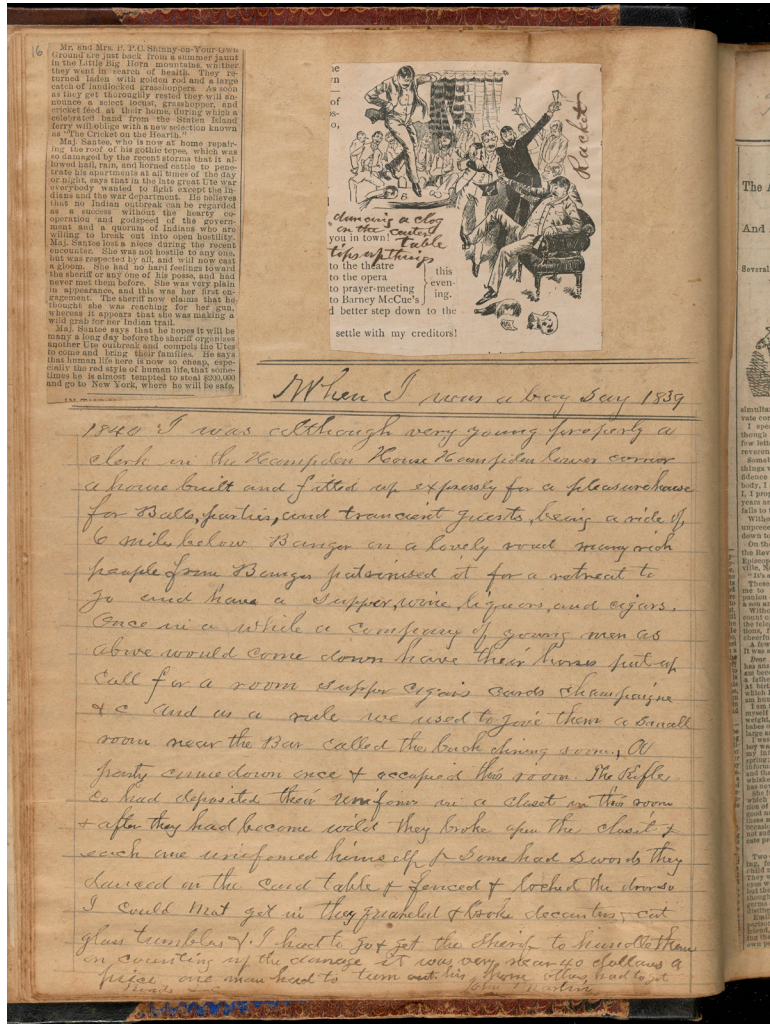 16
Mr. and Mrs. P. P. C. Shinny-on-Your-Own
Ground are just back from a summer jaunt
in the Little Big Horn mountains, whither
they went in search of health. They re-
turned laden with golden rod and a large
catch of landlocked grasshoppers. As soon
as they get thoroughly rested they will an-
nounce a select locust, grasshopper, and
cricket feed at their home, during which a
celebrated band from the Staten Island
ferry will oblige with a new selection known
as "The Cricket on the Hearth."
Maj. Santee, who is now at home repair-
ing the roof of his gothic tepee, which was
so damaged by the recent storms that it al-
lowed hail, rain, and horned cattle to pene-
trate his apartments at all times of the day
or night, says that in the late great Ute war
everybody wanted to fight except the In-
dians and the war department. He believes
that no Indian outbreak can be regarded
as a success without the hearty co-
operation and godspeed of the govern-
ment and a quorum of Indians who are
willing to break out into open hostility.
Maj. Santee lost a niece during the recent
encounter. She was not hostile to any one,
but was respected by all, and will now cast
a gloom. She had no hard feelings toward
the sheriff or any one of his posse, and had
never met them before. She was very plain
in appearance, and this was her first en-
gagement. The sheriff now claims that he
thought she was reaching for her gun,
whereas it appears that she was making a
wild grab for her Indian trail.
Maj. Santee says that he hopes it will be
many a long day before the sheriff organizes
another Ute outbreak and compels the Utes
to come and bring their families. He says
that human life here is now so cheap, espe-
cially the red style of human life, that some-
times he is almost tempted to steal $200,000
and go to New York, where he will be safe.
Racket
dancing a clog
in the center
table
tips up things
you in town!
to the theatre
to the opera
to prayer-meeting
to Barney McCue's
this
even-
ing.
d better step down to the
settle with my creditors!
When I was a boy say 1839
1840 I was although very young properly a
clerk in the Hampden House Hampden lower corner
a house built and fitted up expressly for a pleasure house
for Balls, parties, and trancient guests, being a ride of
6 mile below Bangor on a lovely road many rich
people from Bangor patronised it for a retreat to
go and have a supper, wine, liquors, and cigars.
Once in a while a company of young men as
above would come down have their horses put up
call for a room supper cigars cards champaigne
&c and as a rule we used to give them a small
room near the Bar called the back dining room. A
party came down once & occupied this room. The Rifle
Co had deposited their uniforms in a closet in this room
& after they had become wild they broke open the closet &
each one uniformed himself & some had swords they
danced on the card table & fenced & locked the door so
I could not get in they quareled & broke decanters, cut
glass tumblers &. I had to go & get the Sherif to handle them
on counting up the damage it was very near 40 dollars a
piece one man had to turn out his horse others had to get
John Martin
The
And
Several